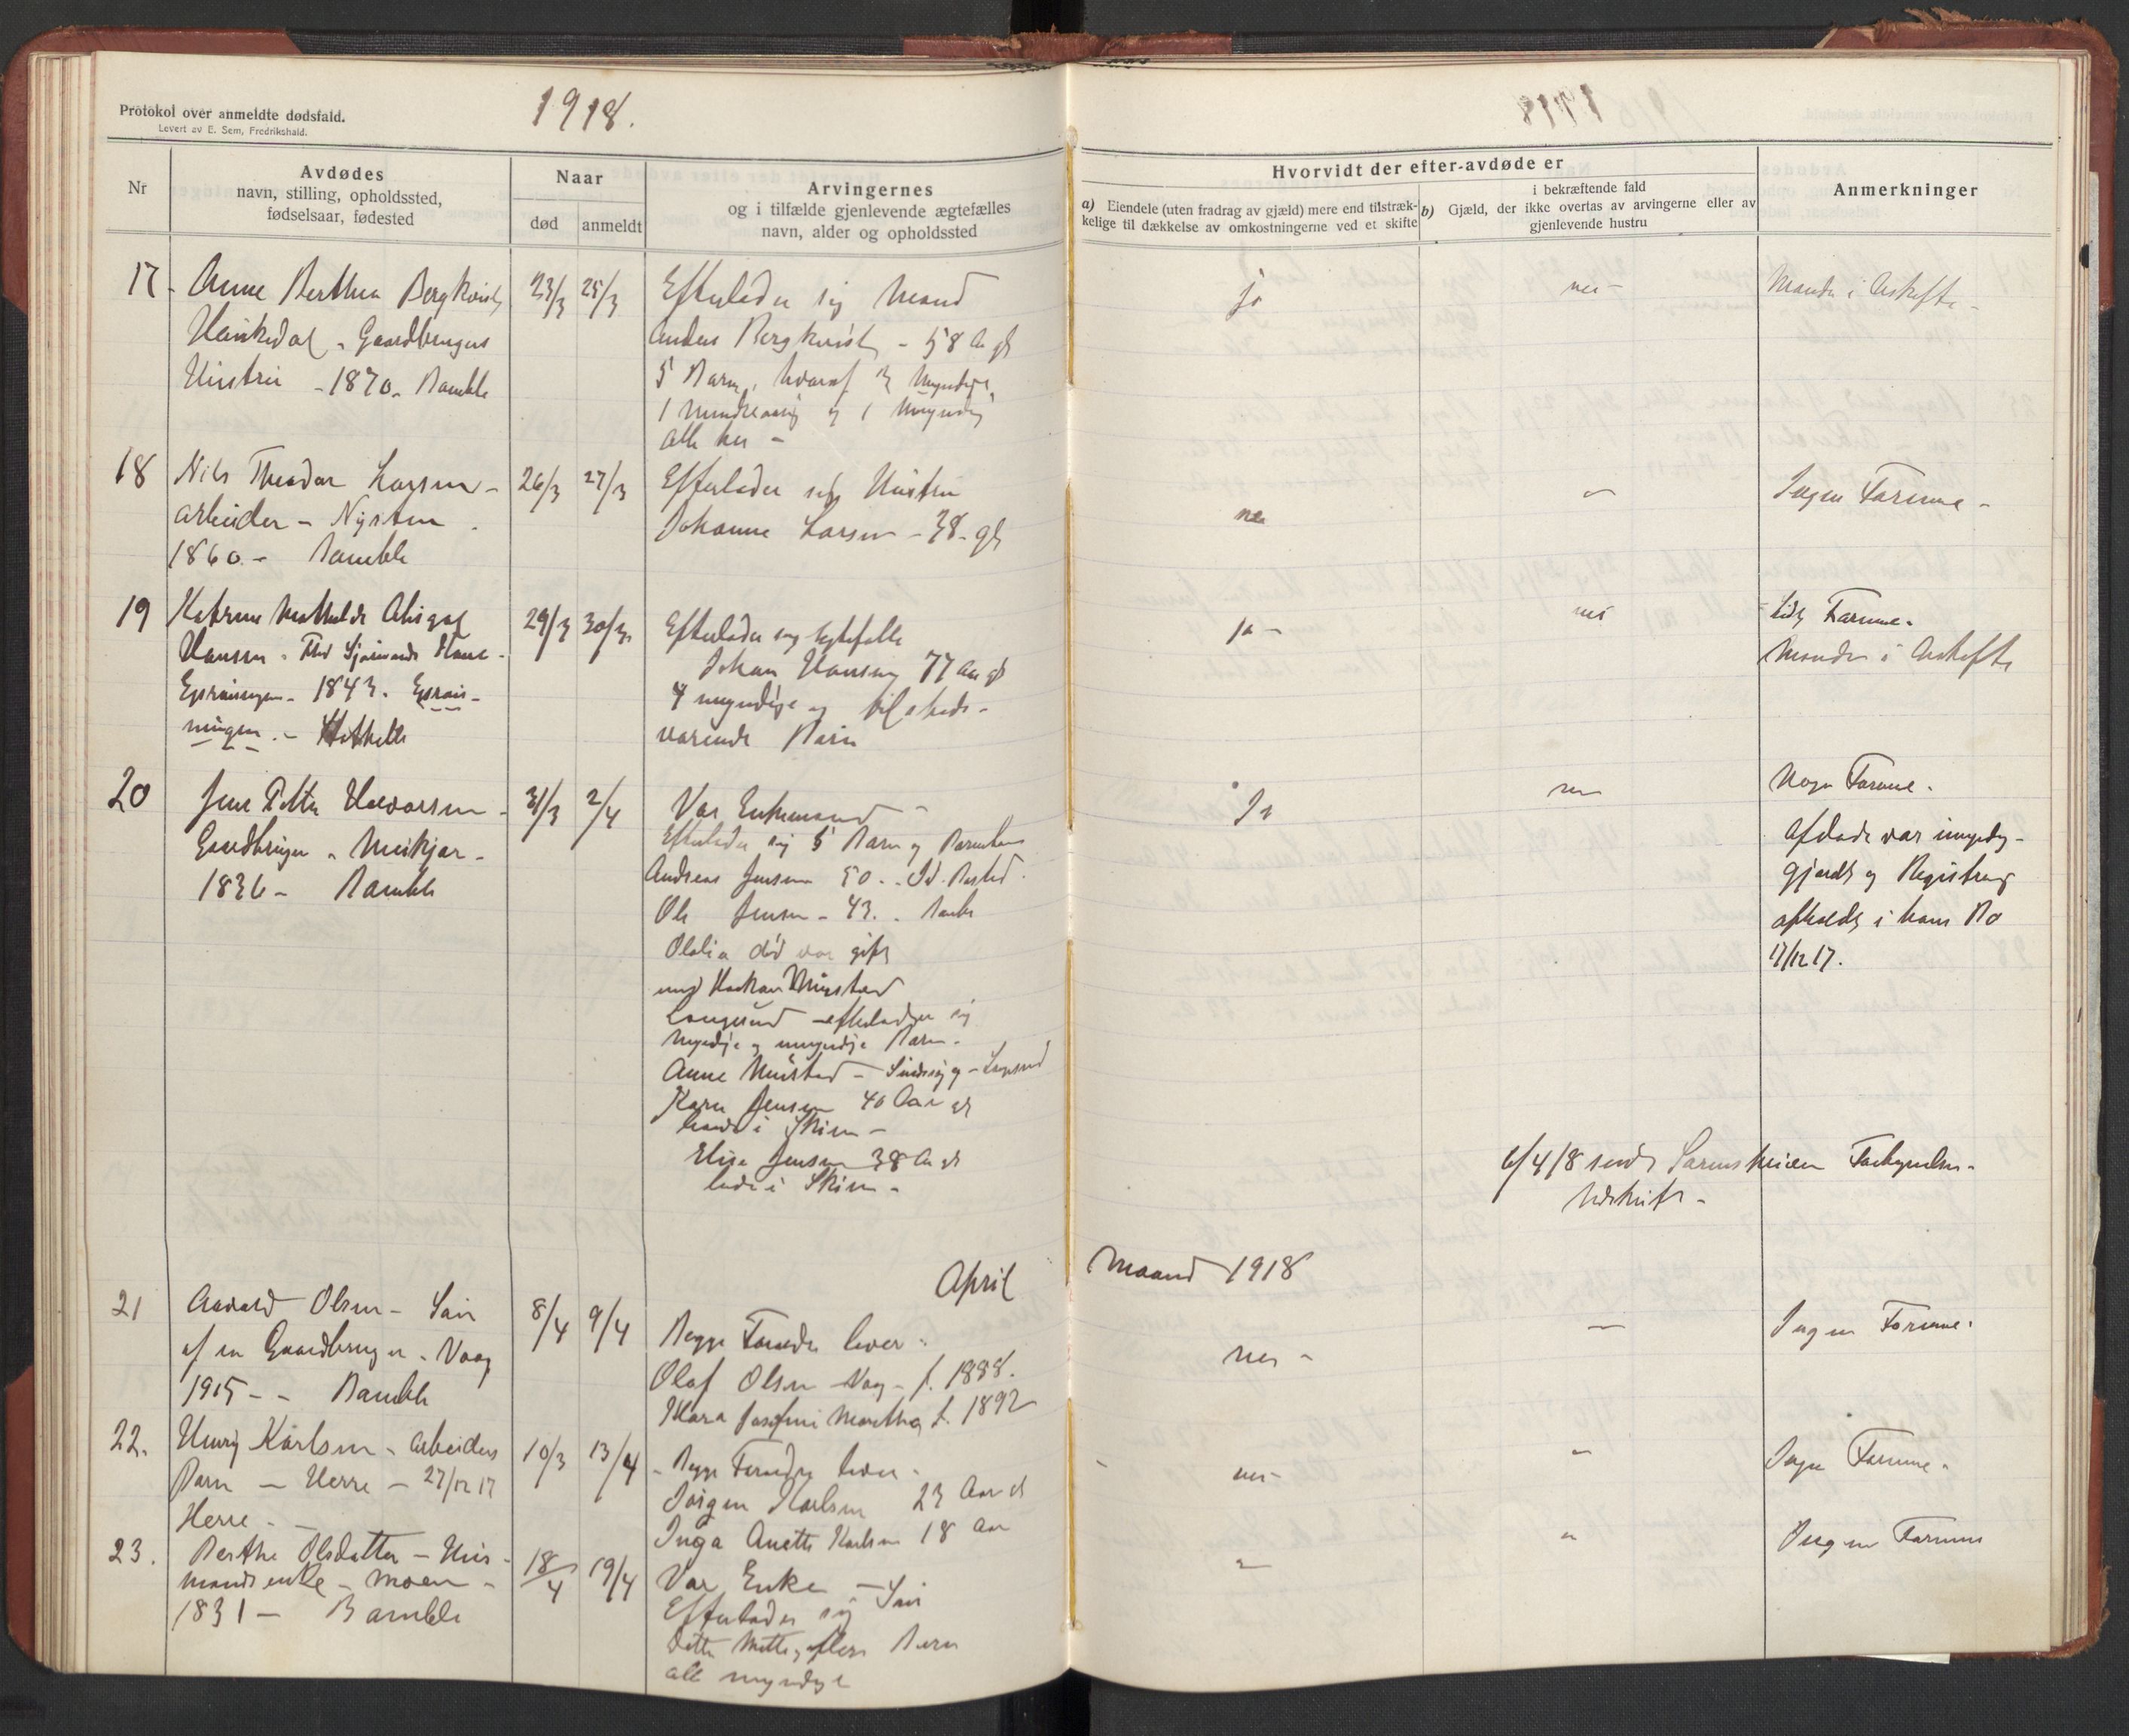 Protokol over anmeldte dødsfald.
Levert av E. Sem, Fredrikshald.
1918.
Nr
Avdødes
navn, stilling, opholdssted,
fødselsaar, fødested
Naar
død
anmeldt
Arvingernes
og i tilfælde gjenlevende ægtefælles
navn, alder og opholdssted
Hvorvidt der efter-avdøde er
a) Eiendele (uten fradrag av gjæld) mere end tilstræk-
kelige til dækkelse av omkostningerne ved et skifte
i bekræftende fald
b) Gjæld, der ikke overtas av arvingerne eller av
gjenlevende hustru
Anmerkninger
17 Anne Berthea Bergkvist 23/3 25/3 Efterlader sig Mand ja nei - Manden i Uskifte -
Gaardbrugers Anders Bergkvist - 58 Aar gl
Hustru - 1870. Bamble 5 Barn, hvoraf 3 Myndige,
1 mindreaarig og 1 Umyndig
alle her -
18 Nils Theodor Larsen - 26/3 27/3 Efterlader sig Hustru nei " Ingen Formue -
arbeider - Nystuen Johanne Larsen - 38 - gl
1860 - Bamble
19 Katrine Mathilde Abigael 29/3 30/3 Efterlader sig ja - nei Lidt Formue.
Hansen - Johan Hansen 77 Aar gl Manden i Uskifte
1843. 4 myndige og tilstede-
værende Barn
20 Jens Petter Halvorsen - 31/3 2/4 Var Enkemand - Ja nei Noge Formue.
Gaardbruger - Efterlader sig 5 Barn og Barnebarn Afdøde var umyndig-
1836 - Bamble Andreas Jensen 50 - gjordt og Registrering
Ole Jensen - 43. - Bamble afholdt i hans Bo
Olalia død var gift 17/12 17.
med Haakan Mustad
Langesund - efterlader sig
Myndige og umyndige Barn -
Anne Mustad - Sindssyg - Langesund
Karen Jensen 40 Aar gl
Skien -
Elise Jensen 38 Aar gl
Skien -
6/4 18 sendt Sorenskriveren
Udskrift -
April Maaned 1918
21 Aavald Olsen - Søn 8/4 9/4 Begge Forældre lever - nei - - Ingen Formue.
af en Gaardbruger - Vaag Olaf Olsen - Vaag - f. 1888.
1915 - - Bamble Klara Josefine Martha f. 1892
22. Henry Karlsen - Arbeiders 10/3 13/4 - Begge Forældre lever - nei - " Ingen Formue -
Barn - Herre - 27/12 17 Jørgen Karlsen 23 Aar gl
Herre - Inga Anette Karlsen 18 Aar
23. Berthe Olsdatter - Hus- 18/4 19/4 Var Enke - " " Ingen Formue
mandsenke - Moen - Efterlader sig Søn
1831 - Bamble Datter Mette, flere Barn
alle myndige